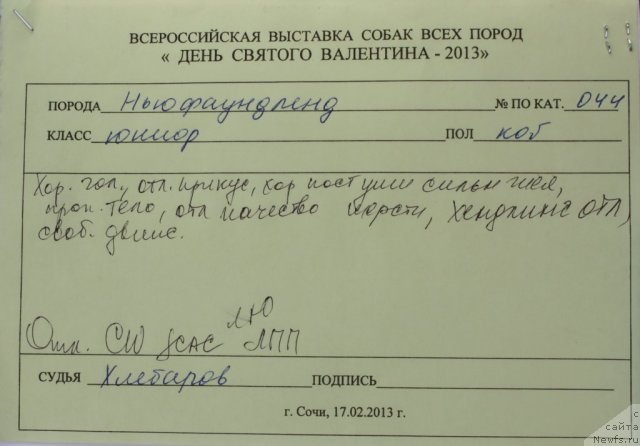 ВСЕРОССИЙСКАЯ ВЫСТАВКА СОБАК ВСЕХ ПОРОД
« ДЕНЬ СВЯТОГО ВАЛЕНТИНА - 2013»
ПОРОДА Ньюфаундленд № ПО КАТ. 044
КЛАСС юниор ПОЛ коб
Хор. гол, отл. прикус, хор пост уши сильн шея,
проп. тело, отл качество шерсти, хендлинг отл,
своб. движ.
ЛЮ
Отл. CW ЛПП
СУДЬЯ Хлебаров ПОДПИСЬ
г. Сочи, 17.02.2013 г.
с
сайта
Newfs.ru